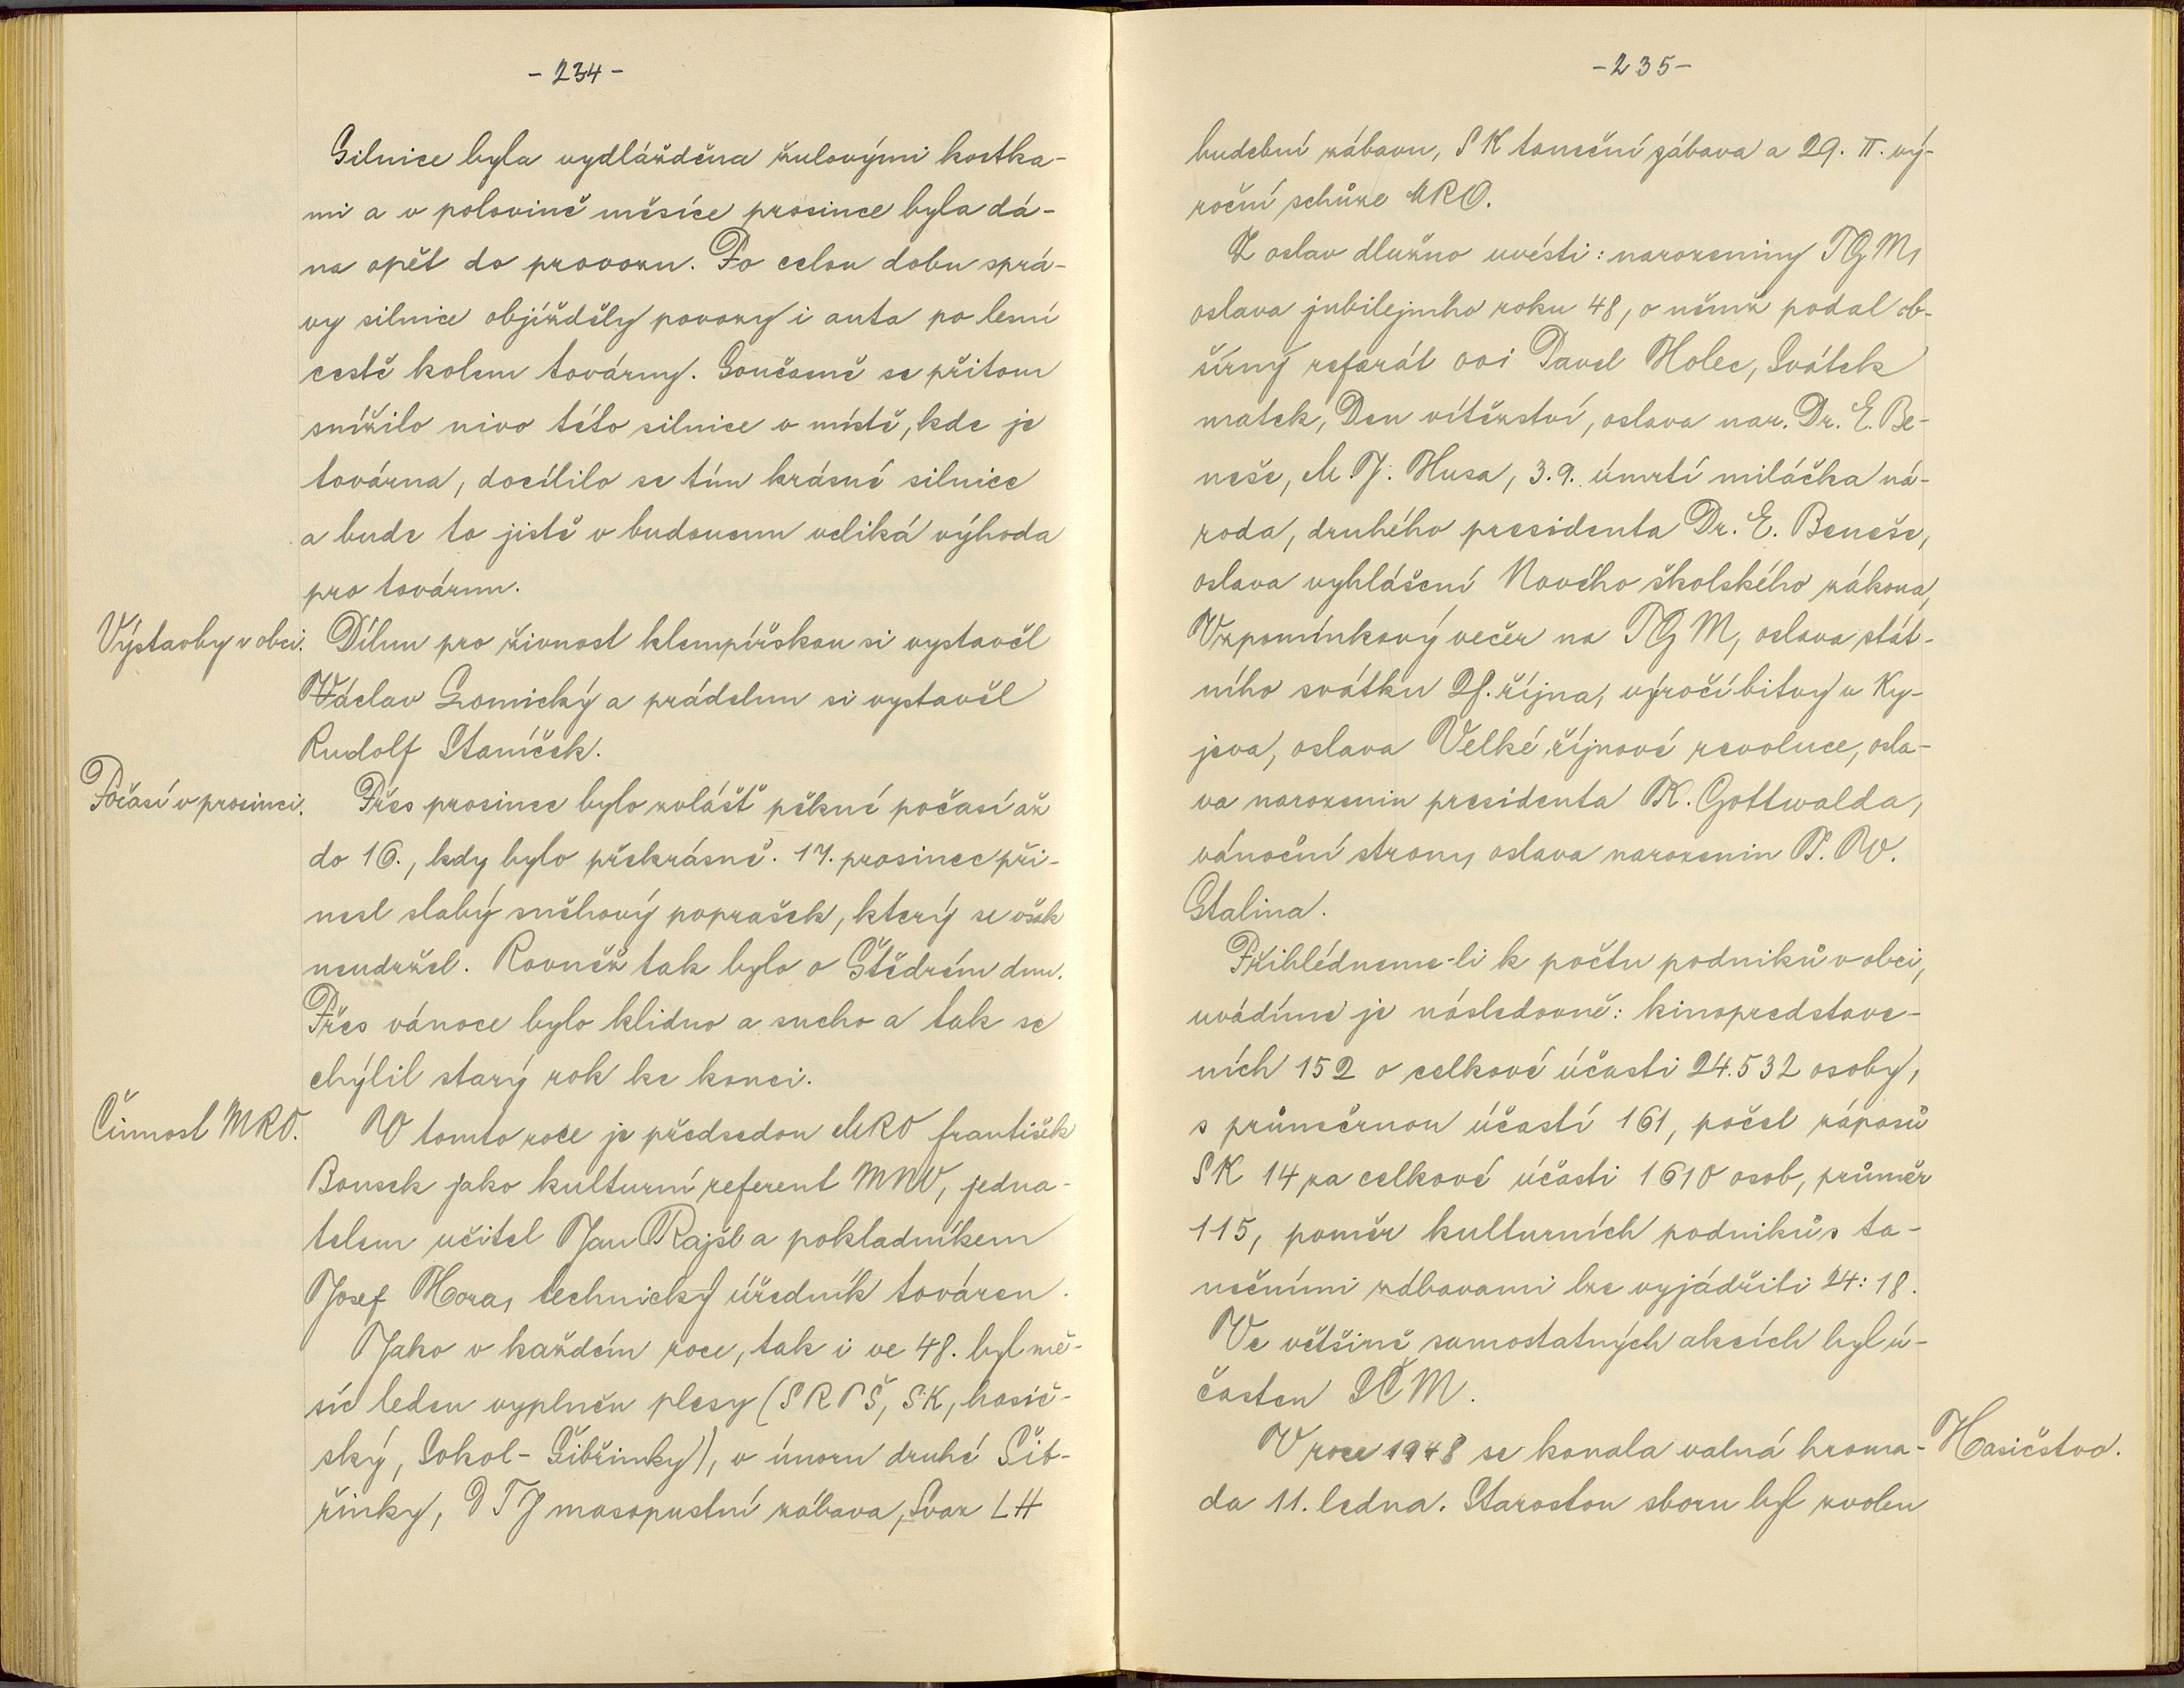 -234-
Silnice byla vydlážděna žulovými kostka-
mi a v polovině měsíce prosince byla dá-
na opět do provozu. Po celou dobu sprá-
vy silnice objížděly povozy i auta po lesní
cestě kolem továrny. Současně se přitom
snížilo nivo této silnice v místě, kde je
továrna, docílilo se tím krásné silnice
a bude to jistě v budoucnu veliká výhoda
pro továrnu.
Výstavby v obci. Dílnu pro živnost klempířskou si vystavěl
Václav Lomický a prádelnu si vystavěl
Rudolf Staníček.
Počasí v prosinci. Přes prosinec bylo zvlášť pěkné počasí až
do 16., kdy bylo překrásně. 17. prosinec při-
nesl slabý sněhový poprašek, který se však
neudržel. Rovněž tak bylo o Štědrém dnu.
Přes vánoce bylo klidno a sucho a tak se
chýlil starý rok ke konci.
Činnost MRO. V tomto roce je předsedou MRO František
Bousek jako kulturní referent MNV, jedna-
telem učitel Jan Rajšl a pokladníkem
Josef Hora, technický úředník továren.
Jako v každém roce, tak i ve 48. byl mě-
síc leden vyplněn plesy (SRPŠ, SK, hasič-
ský, Sokol - Šibřinky), v únoru druhé Šib-
řinky, DTJ masopustní zábava, Svaz LH
-235-
hudební zábavu, SK taneční zábava a 29. II. vý-
roční schůze MRO.
Z oslav dlužno uvésti: narozeniny TGM,
oslava jubilejního roku 48, o němž podal ob-
šírný referát ooi Pavel Holec, Svátek
matek, Den vítězství, oslava nar. Dr. E. Be-
neše, M. J. Husa, 3.9. úmrtí miláčka ná-
roda, druhého presidenta Dr. E. Beneše,
oslava vyhlášení Nového školského zákona,
Vzpomínkový večer na TGM, oslava stát-
ního svátku 28. října, výročí bitvy u Ky-
jeva, oslava Velké říjnové revoluce, osla-
va narozenin presidenta K. Gottwalda,
vánoční strom, oslava narozenin J. V.
Stalina.
Přihlédneme-li k počtu podniků v obci,
uvádíme je následovně: kinopredstave-
ních 152 o celkové účasti 24.532 osoby,
s průměrnou účastí 161, počet zápasů
SK 14 za celkové účasti 1610 osob, průměr
115, poměr kulturních podniků s ta-
nečními zábavami lze vyjádřiti 24:18.
Ve většině samostatných akcích byl ú-
časten SČM.
V roce 1948 se konala valná hroma- Hasičstvo.
da 11. ledna. Starostou sboru byl zvolen